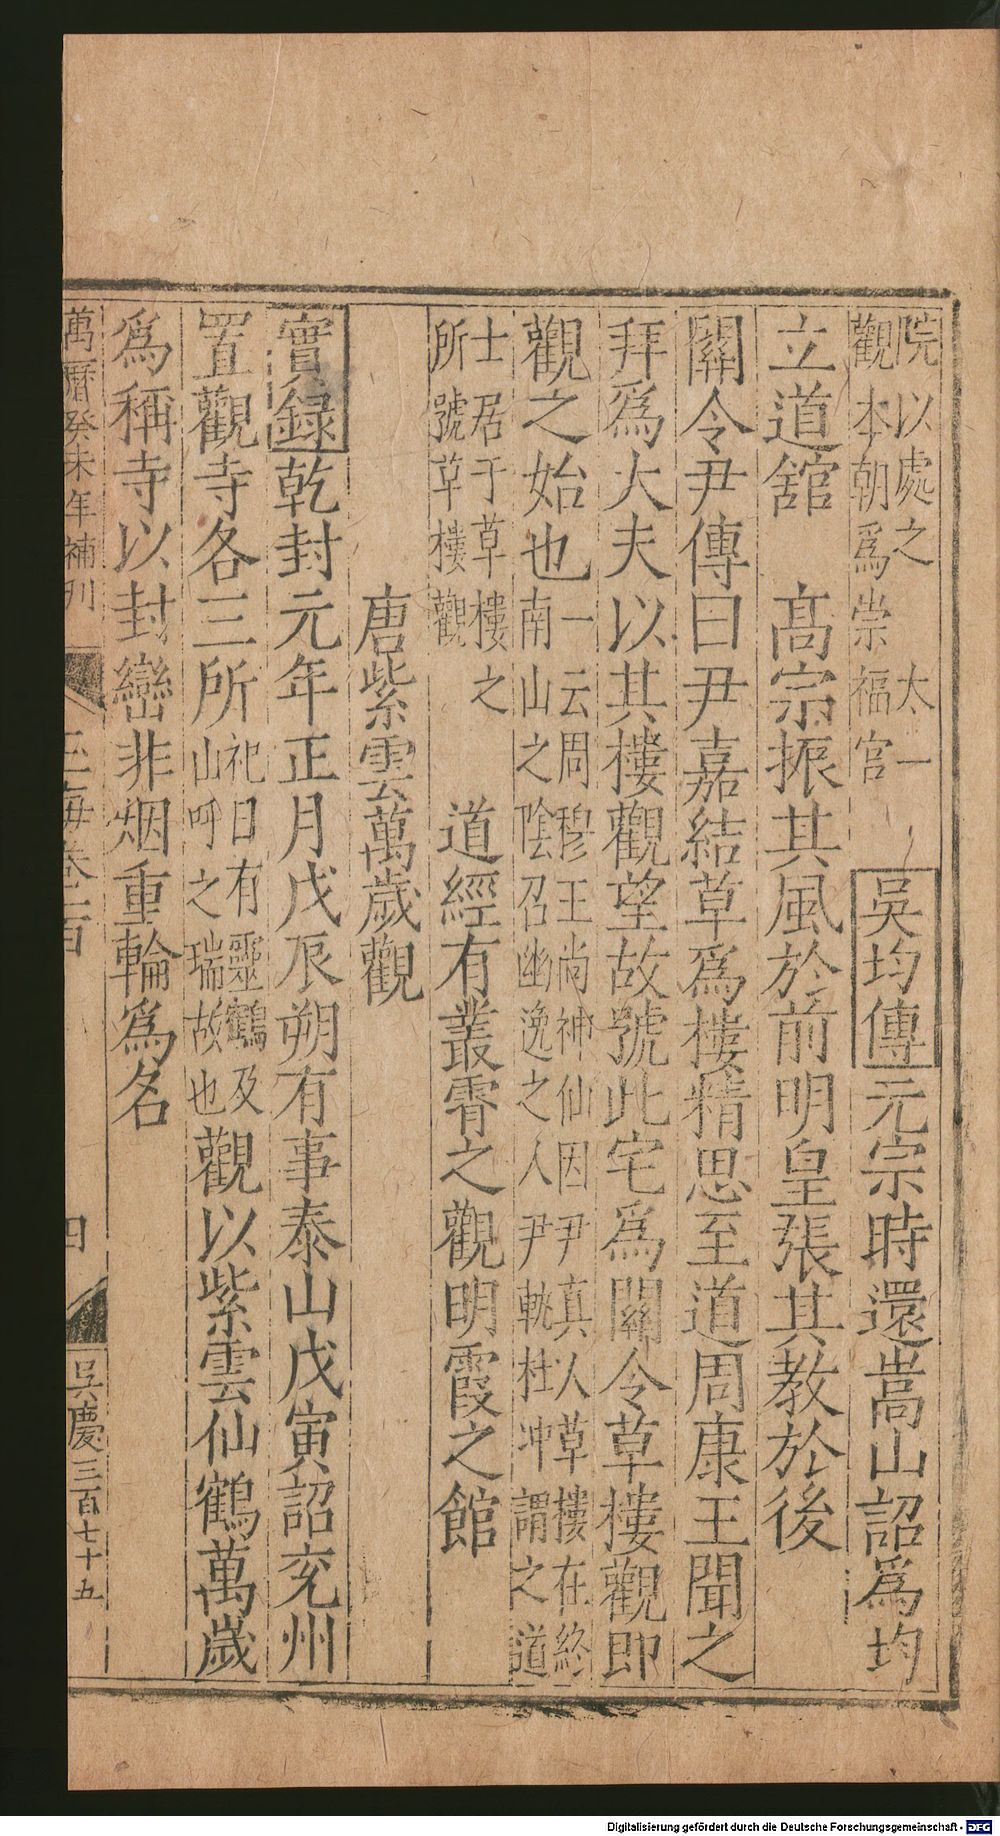 院以處之　太一
觀本朝爲崇福官
吳均傳元宗時還嵩山詔爲均
立道舘　髙宗振其風於前明皇張其教於後
關令尹傳曰尹嘉結草爲樓精思至道周康王聞之
拜爲大夫以其樓觀望故號此宅爲關令草樓觀即
觀之始也
一云周穆王尚神仙因尹真人草樓在終
南山之陰召幽逸之人尹軌杜冲謂之道
士居于草樓之
所號草樓觀
道經有叢霄之觀明霞之館
唐紫雲萬歲觀
實錄乾封元年正月戊辰朔有事泰山戊寅詔兖州
置觀寺各三所
祀日有靈鶴及
山呼之瑞故也
觀以紫雲仙鶴萬歲
爲稱寺以封巒非烟重輪爲名
萬曆癸未年補刊
玉海卷一百
四
吴慶三百七十五
Digitalisierung gefördert durch die Deutsche Forschungsgemeinschaft - DFG